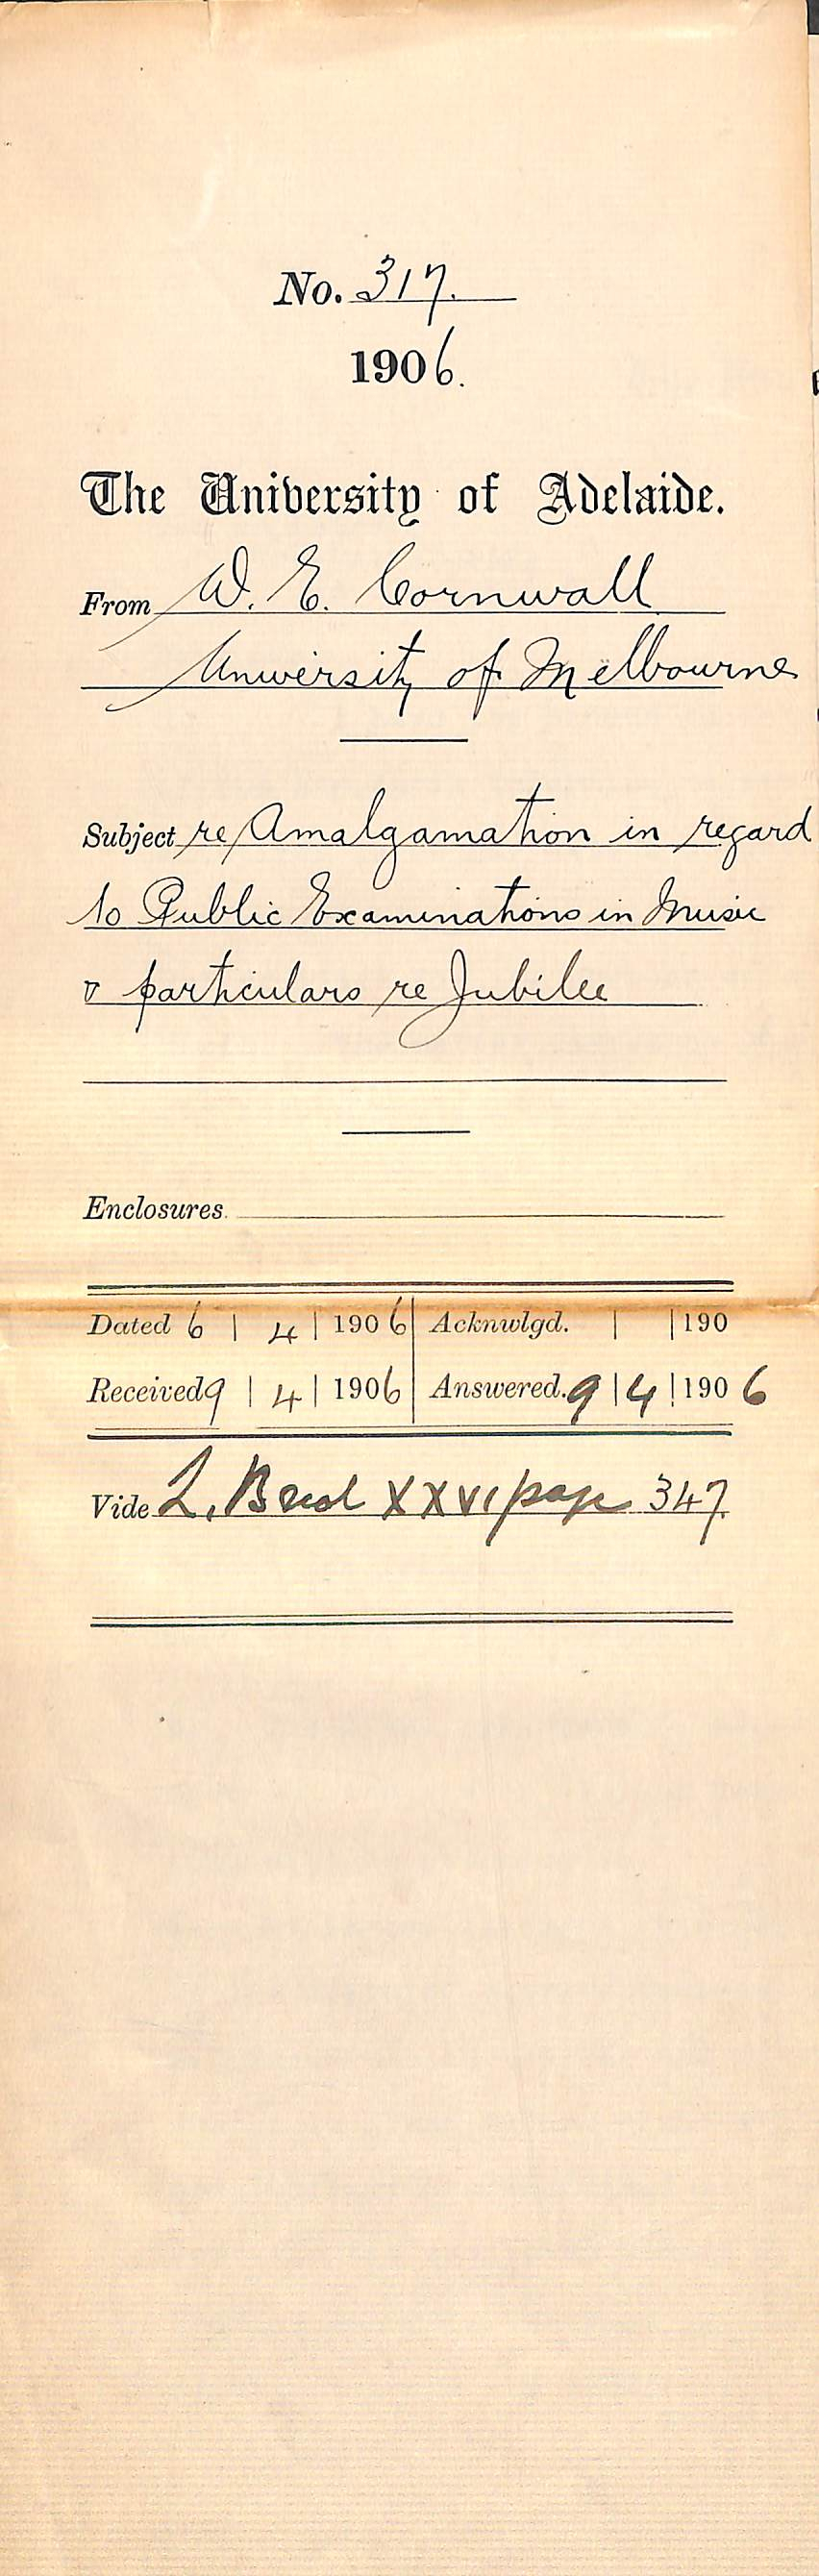 No. 317.
1906.
The University of Adelaide.
From W. E. Cornwall
University of Melbourne
Subject re Amalgamation in regard
to Public Examinations in Music
& particulars re Jubilee
Enclosures.
Dated 6 | 4 | 1906 | Acknwlgd. | | 190
Received 9 | 4 | 1906 | Answered. 9 | 4 | 1906
Vide L. Book XXVI page 347.